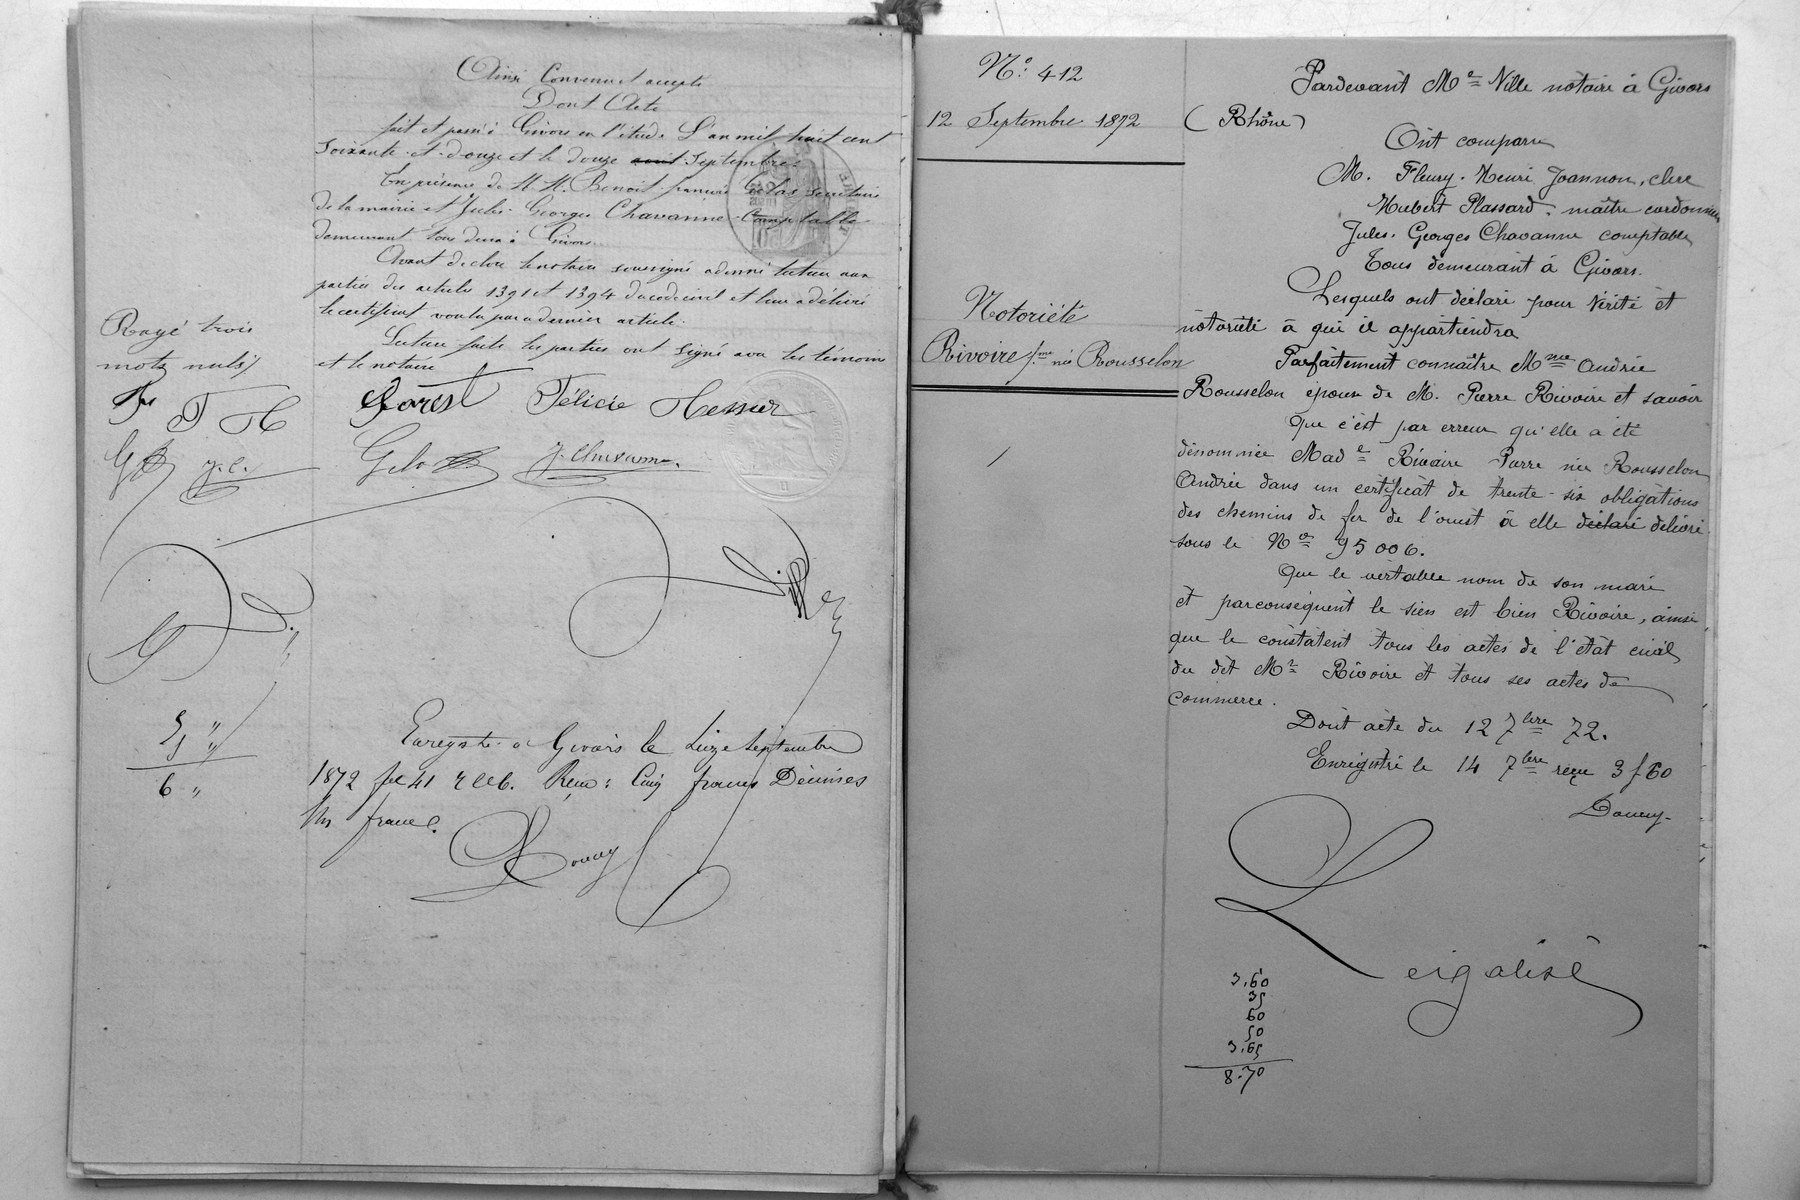 Ainsi Convenu et accepté
Dont Acte
fait et passé à Givors en l'étude L'an mil huit cent
soixante-et-douze et le douze août Septembre.
En présence de M. M. Benoit françois Gelas secrétaire
de la mairie et Jules-Georges Chavanne-Comptable
demeurant tous deux à Givors.
Avant de clore le notaire soussigné a donné lecture aux
parties des articles 1391 et 1394 du code civil et leur a délivré
le certificat voulu par ce dernier article.
Lecture faite les parties ont signé avec les témoins
et le notaire
Rayé trois
mots nuls
F H
Forest Félicie Messier
G
J. C.
Gelas
J. Chavanne.
5 "
1 "
6 "
Enregistré à Givors le seize septembre
1872 fol 41 r c 6. Reçu: Cinq francs Décimes
Un franc.
Doucy
N.° 412
12 Septembre 1872
Notoriété
Rivoire fme née Rousselon
Pardevant Me Ville notaire à Givors
(Rhône)
Ont comparu
M. Fleury-Henri Joannon, clerc
Hubert Plassard, maître cordonnier
Jules-Georges Chavanne comptable
Tous demeurant à Givors.
Lesquels ont déclaré pour vérité et
notoriété à qui il appartiendra
Parfaitement connaître Mme Andrée
Rousselon épouse de M. Pierre Rivoire et savoir
Que c'est par erreur qu'elle a été
dénommée Made Rivaire Pierre née Rousselon
Andrée dans un certificat de trente-six obligations
des chemins de fer de l'ouest à elle déclaré délivré
sous le No 95006.
Que le véritable nom de son mari
et parconséquent le sien est bien Rivoire, ainsi
que le constatent tous les actes de l'état civil
du dit Mr Rivoire et tous ses actes de
commerce.
Dont acte du 12 7bre 72.
Enregistré le 14 7bre reçu 3 f 60
Doucy-
Leigalisé
3.60
35
60
50
3.65
8.70